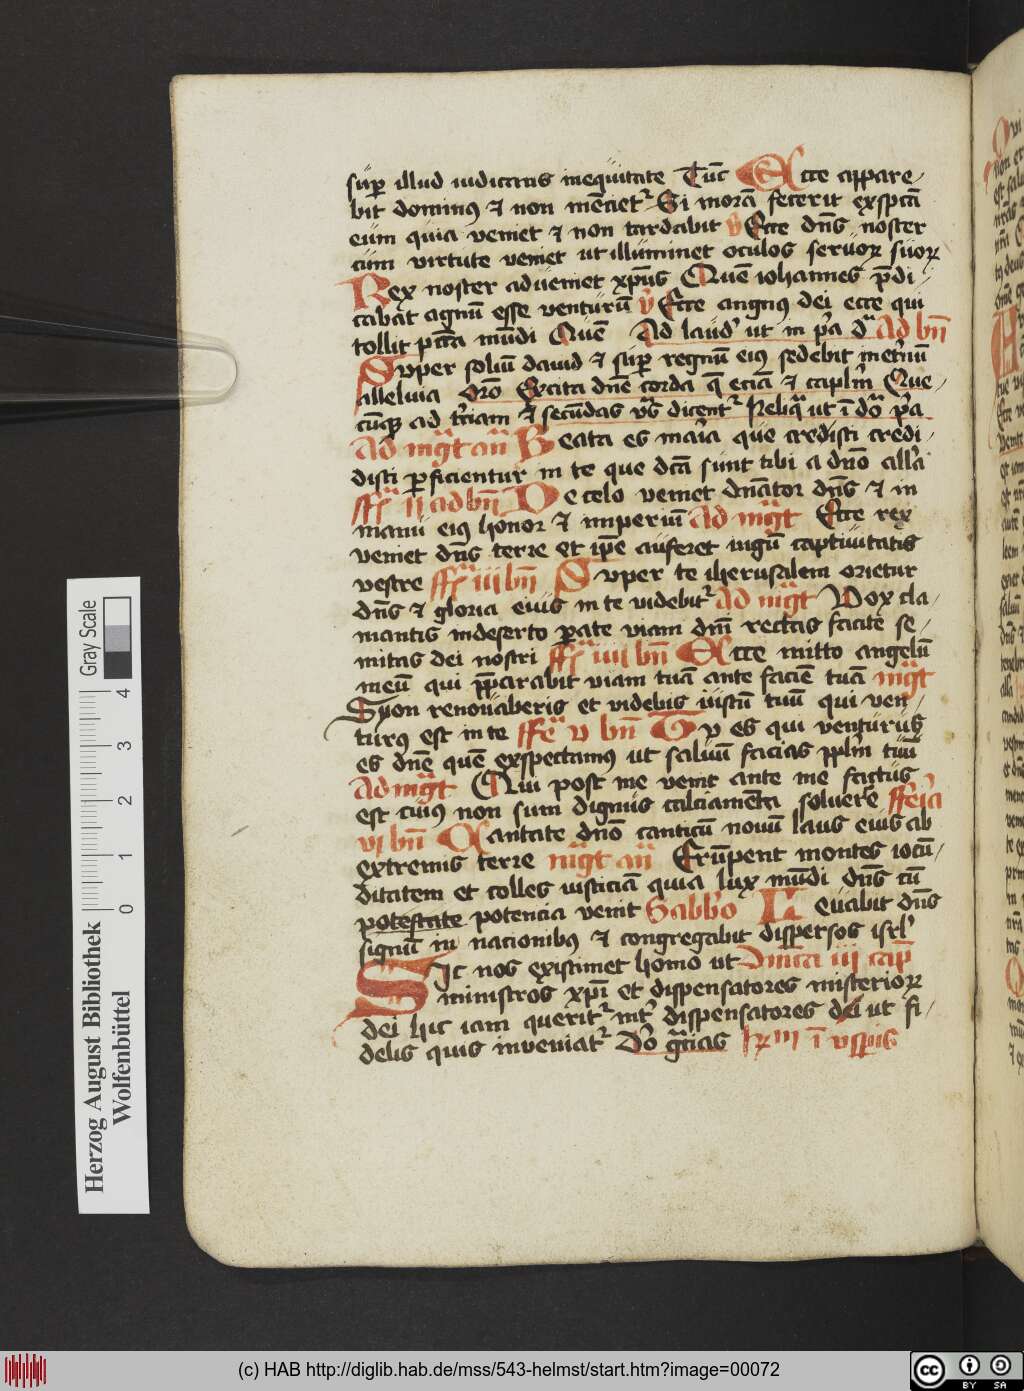 sup̄ illud iudicans in equitate Tuc̄ Ecce appare-
bit dominus ⁊ non mēciet᷑ Si moram̄ fecerit exspcā
eum quia veniet ⁊ non tardabit v̄ Ecce dn̄s noster
cum virtute veniet ut illuminet oculos seruoꝝ suoꝝ
Rex noster adueniet xp̄us Quē iohannes p̄di-
cabat agnū esse venturū v̄ Ecce angnus dei ecce qui
tollit pc̄ca mūdi Quē Ad laud' ut in p̄a dᷓ Ad bn̄
Super soliū dauid ⁊ sup̄ regnū eiꝰ sedebit in et'nū
alleluia Orō Excita dn̄e corda q̄ eciā ⁊ caplm̄ Que-
cūqꝫ ad t'ciam ⁊ secūdas vᷓs dicent᷑ Reliqᷓ ut ī dōᷓ p̄a
Ad mgᷓt an̄ Beata es maīa que credisti credi-
disti ꝑficientur in te que dc̄a sunt tibi a dn̄o all'a
ffᷓ ii ad bn̄ De celo veniet dn̄ator dn̄s ⁊ in
manu eiꝰ honor ⁊ imperiū Ad mgᷓt Ecce rex
veniet dn̄s terre et ip̄e auferet iugū captiuitatis
vestre ffᷓ iii bn̄ Super te iherusalem orietur
dn̄s ⁊ gloria eius in te videbit᷑ Ad mgᷓt Vox cla-
mantis in deserto ꝑate viam dn̄i rectas facite se-
mitas dei nostri ffᷓ iiii bn̄ Ecce mitto angelū
meū qui p̄parabit viam tuā ante faciē tuā mgᷓt
Syon renouaberis et videbis iustū tuū qui ven-
turꝰ est in te ffēᷓ v bn̄ Tu es qui venturus
es dn̄e quē exspectamꝰ ut saluū facias pplm̄ tuū
Ad mgᷓt Qui post me venit ante me factus
est cuiꝰ non sum dignus calciamēta soluere ffeīa
vi bn̄ Cantate dn̄o canticū nouū laus eius ab
extremis terre mgᷓt an̄ Erūpent montes iocū-
ditatem et colles iusticiā quia lux mūdi dn̄s cū
potestate potencia venit Sabb'o Leuabit dn̄s
signū in nacionibꝰ ⁊ congregabit dispersos isrl'
Sic nos existimet homo ut Dn̄ica iii cap̄
ministros xp̄i et dispensatores misterioꝝ
dei hic iam querit᷑ int' dispensatores dei ut fi-
delis quis inveniat᷑ Dō gᷓcias in ī vsꝑis
Herzog August Bibliothek
Wolfenbüttel
0 1 2 3 4
Gray Scale
(c) HAB http://diglib.hab.de/mss/543-helmst/start.htm?image=00072
cc BY SA